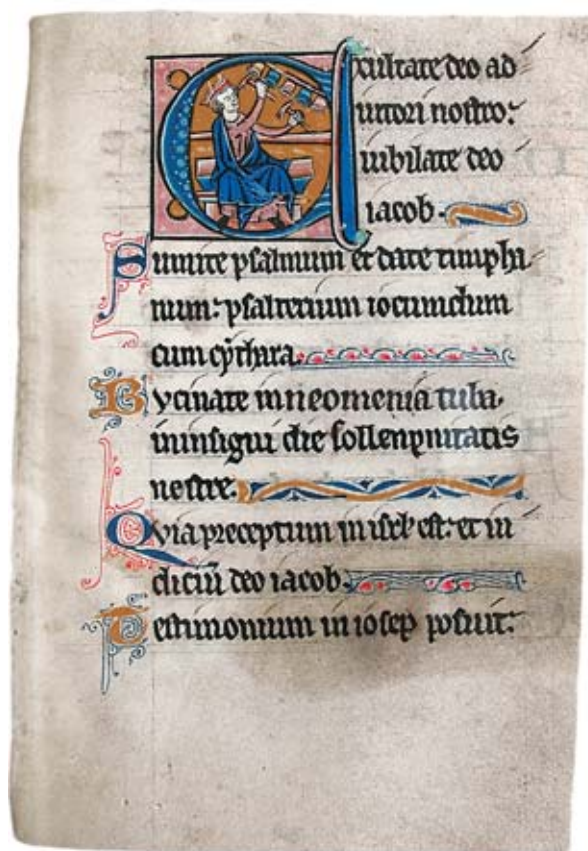 Exultate deo ad
iutori nostro:
iubilate deo
iacob.
Sumite psalmum et date timpha
num: psalterium iocundum
cum cythara.
Bucinate in neomenia tuba.
in insigni die sollempnitatis
nostre.
Quia preceptum in isrl est: et iu
diciū deo iacob.
Testimonium in iosep posuit: